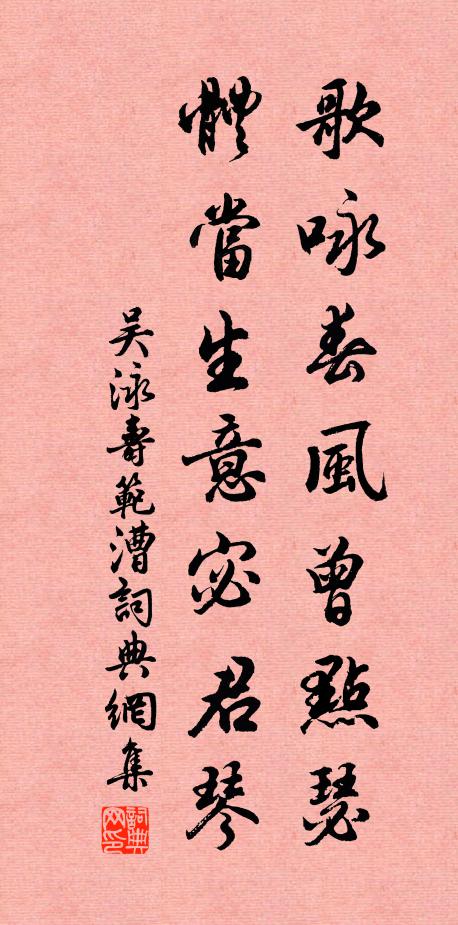 歌咏春風曾點瑟
體當生意宓君琴
吴泳壽範漕詞典網集
詞典網印